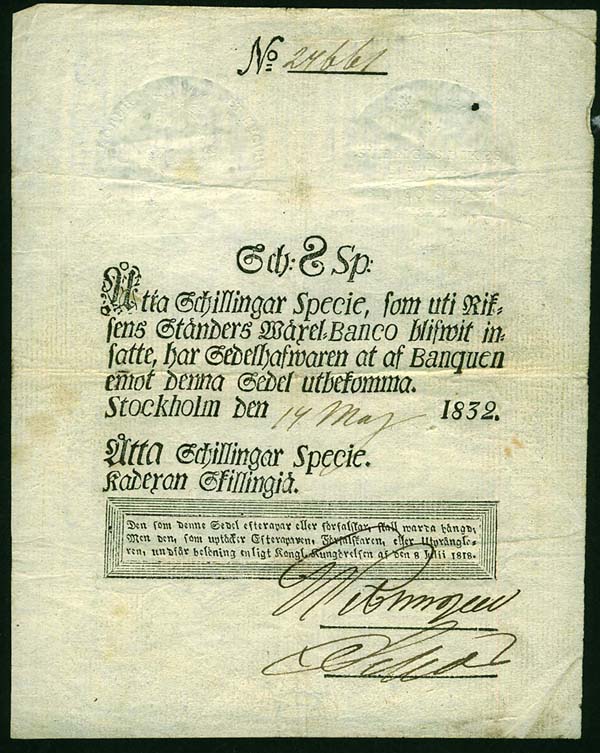 No 24661
Sch: 8 Sp:
Åtta Schillingar Specie, som uti Rik-
sens Ständers Wäxel-Banco blifwit in-
satte, har Sedelhafwaren at af Banquen
em̄ot denna Sedel utbekomma.
Stockholm den 14 Maj 1832.
Åtta Schillingar Specie.
Kadexan Skillingiä.
Den som denne Sedel efterapar eller förfalskar, skall warda hängd;
Men den, som uptäcker Efteraparen, Förfalskaren, eller Utprängle-
ren, undfår belöning enligt Kongl. Kungörelsen af den 8 Julii 1818.